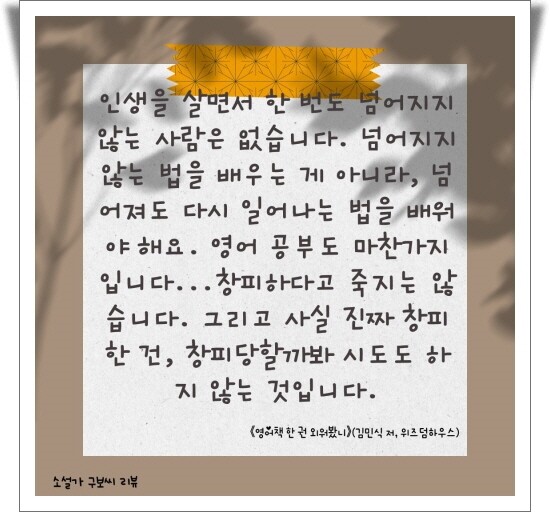 인생을 살면서 한 번도 넘어지지
않는 사람은 없습니다. 넘어지지
않는 법을 배우는 게 아니라, 넘
어져도 다시 일어나는 법을 배워
야 해요. 영어 공부도 마찬가지
입니다...창피하다고 죽지는 않
습니다. 그리고 사실 진짜 창피
한 건, 창피당할까봐 시도도 하
지 않는 것입니다.
《영어책 한 권 외워봤니》(김민식 저, 위즈덤하우스)
소설가 구보씨 리뷰